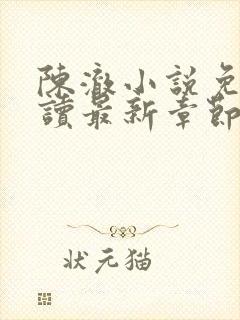 陳澈小說免
讀最新章節
状元猫